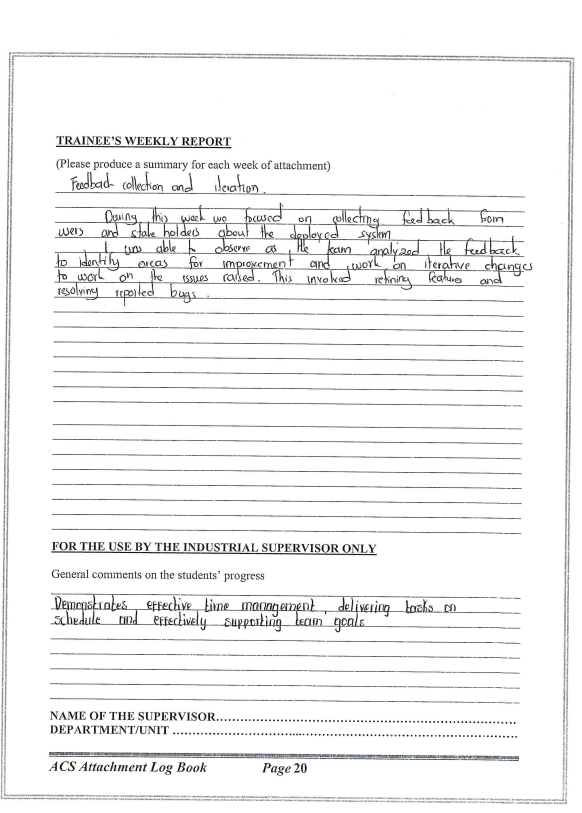 TRAINEE'S WEEKLY REPORT
(Please produce a summary for each week of attachment)
Feedback collection and iteration.
During this week we focused on collecting feedback from
users and stake holders about the deployed system
I was able to observe as the team analyzed the feedback
to identify areas for improvement and work on iterative changes
to work on the issues raised. This involved refining features and
resolving reported bugs.
FOR THE USE BY THE INDUSTRIAL SUPERVISOR ONLY
General comments on the students' progress
Demonstrates effective time management, delivering tasks on
schedule and effectively supporting team goals
NAME OF THE SUPERVISOR..................................................................
DEPARTMENT/UNIT ..........................................................................
ACS Attachment Log Book Page 20